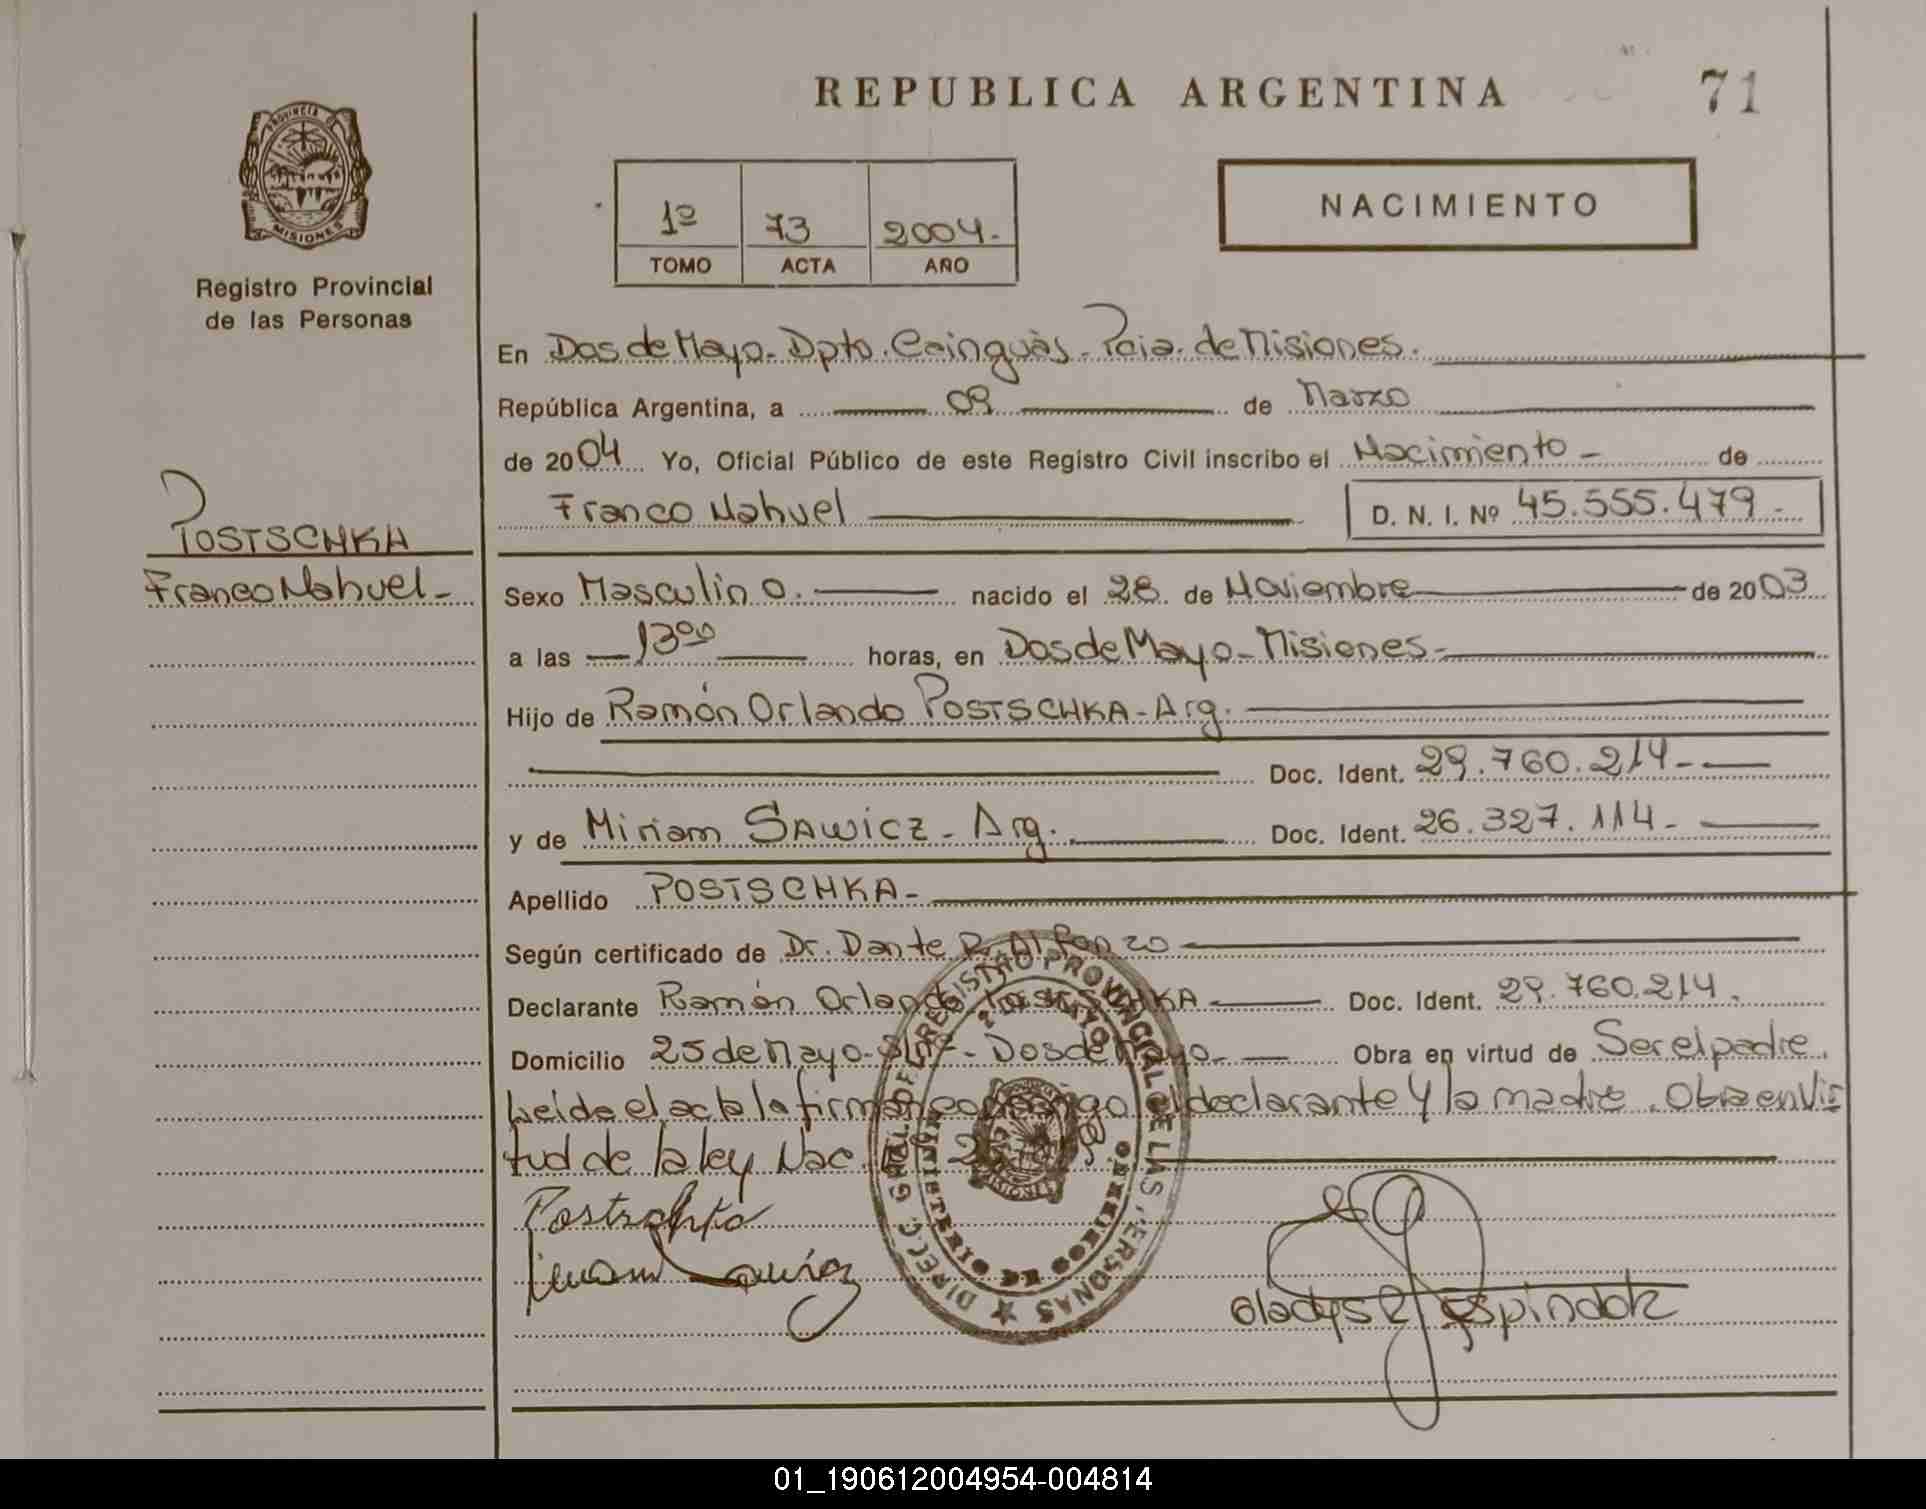 REPUBLICA ARGENTINA
71
PROVINCIA DE
MISIONES
Registro Provincial
de las Personas
1º 73 2004.-
TOMO ACTA AÑO
NACIMIENTO
En Dos de Mayo - Dpto. Cainguás - Pcia. de Misiones.
República Argentina, a 09 de Marzo
de 2004 Yo, Oficial Público de este Registro Civil inscribo el Nacimiento - de
Franco Nahuel D. N. I. Nº 45.555.479 -
POSTSCHKA
Franco Nahuel -
Sexo Masculino. nacido el 28 de Noviembre de 2003
a las 13⁰⁰ horas, en Dos de Mayo - Misiones -
Hijo de Ramón Orlando POSTSCHKA - Arg.
Doc. Ident. 29.760.214 -
y de Miriam SAWICZ - Arg. Doc. Ident. 26.327.114 -
Apellido POSTSCHKA -
Según certificado de Dr. Dante R. Alfonzo
Declarante Ramón Orlando POSTSCHKA Doc. Ident. 29.760.214.
Domicilio 25 de Mayo - S/Nº - Dos de Mayo - Obra en virtud de Ser el padre.
Leída el acta la firman conmigo el declarante y la madre. Obra en Vir
tud de la ley Nac.
DIRECC. GRAL. DEL REGISTRO PROVINCIAL DE LAS PERSONAS
2 DE MAYO
MINISTERIO DE GOBIERNO
Postschka
Miriam Sawicz
Gladys R. Espindola
01_190612004954-004814